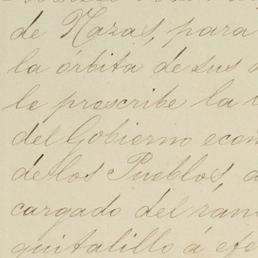 de Nazas, para
la orbita de sus
le prescribe la
del Gobierno econ
de los Pueblos,
cargado del ram
quitalillo á efe